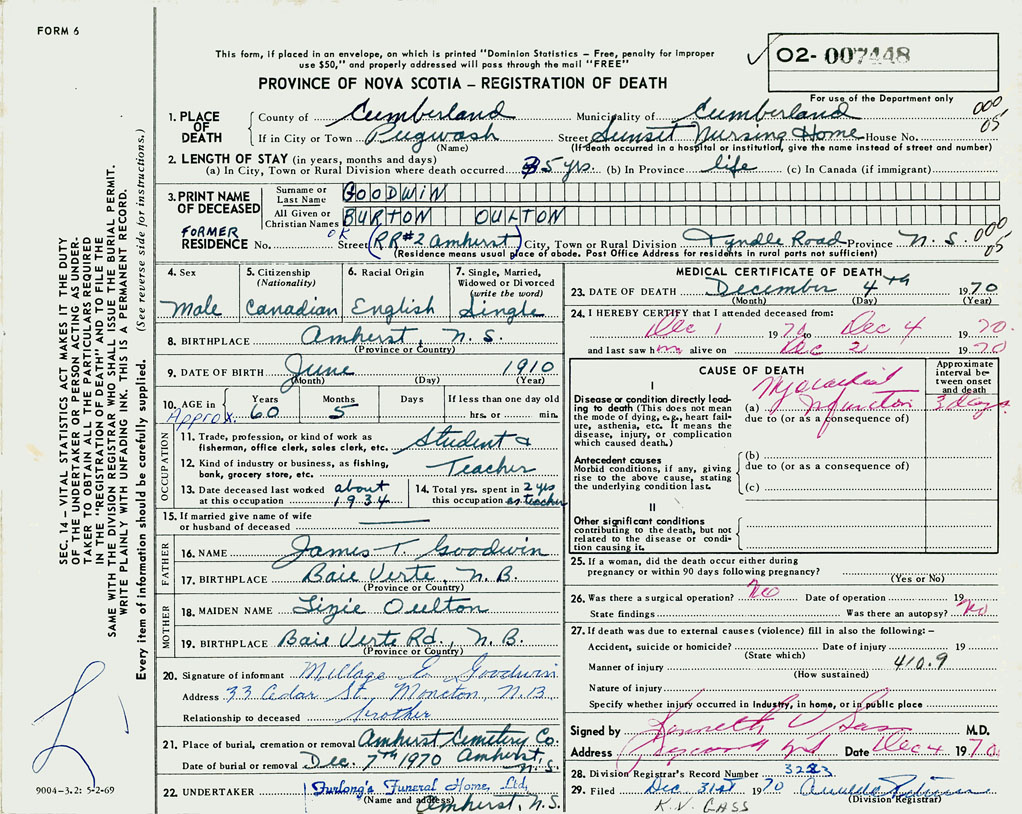 FORM 6
This form, if placed in an envelope, on which is printed "Dominion Statistics – Free, penalty for improper
use $50," and properly addressed will pass through the mail "FREE"
02- 007448
PROVINCE OF NOVA SCOTIA – REGISTRATION OF DEATH
For use of the Department only
1. PLACE OF DEATH County of Cumberland Municipality of Cumberland 000
If in City or Town Pugwash Street Sunset Nursing Home House No. 05
(Name) (If death occurred in a hospital or institution, give the name instead of street and number)
2. LENGTH OF STAY (in years, months and days)
(a) In City, Town or Rural Division where death occurred 35 yrs. (b) In Province life (c) In Canada (if immigrant)
3. PRINT NAME OF DECEASED Surname or Last Name GOODWIN
All Given or Christian Names BURTON OULTON
FORMER OK 000
RESIDENCE No. Street (RR#2 Amherst) City, Town or Rural Division Tyndle Road Province N.S. 05
(Residence means usual place of abode. Post Office Address for residents in rural parts not sufficient)
4. Sex Male
5. Citizenship (Nationality) Canadian
6. Racial Origin English
7. Single, Married, Widowed or Divorced (write the word) Single
8. BIRTHPLACE Amherst N.S.
(Province or Country)
9. DATE OF BIRTH June 1910
(Month) (Day) (Year)
10. AGE in Approx. Years 60 Months 5 Days If less than one day old hrs. or min.
OCCUPATION
11. Trade, profession, or kind of work as fisherman, office clerk, sales clerk, etc. Student &
12. Kind of industry or business, as fishing, bank, grocery store, etc. Teacher
13. Date deceased last worked at this occupation about 1934
14. Total yrs. spent in this occupation 2 yrs as teacher
15. If married give name of wife or husband of deceased
FATHER
16. NAME James T. Goodwin
17. BIRTHPLACE Baie Verte, N.B.
(Province or Country)
MOTHER
18. MAIDEN NAME Lizie Oulton
19. BIRTHPLACE Baie Verte Rd., N.B.
(Province or Country)
20. Signature of informant Millage E. Goodwin
Address 33 Cedar St. Moncton N.B
Relationship to deceased brother
21. Place of burial, cremation or removal Amherst Cemetery Co.
Date of burial or removal Dec. 7th 1970 Amherst, N.S.
22. UNDERTAKER Furlong's Funeral Home, Ltd,
(Name and address) Amherst, N.S.
MEDICAL CERTIFICATE OF DEATH
23. DATE OF DEATH December 4th 1970
(Month) (Day) (Year)
24. I HEREBY CERTIFY that I attended deceased from:
Dec 1 1970 to Dec 4 1970
and last saw him alive on Dec 2 1970
CAUSE OF DEATH
Approximate interval between onset and death
I
Disease or condition directly leading to death (This does not mean the mode of dying, e.g., heart failure, asthenia, etc. It means the disease, injury, or complication which caused death.)
(a) Myocardial Infarction 3 days
due to (or as a consequence of)
Antecedent causes
Morbid conditions, if any, giving rise to the above cause, stating the underlying condition last.
(b)
due to (or as a consequence of)
(c)
II
Other significant conditions
contributing to the death, but not related to the disease or condition causing it.
25. If a woman, did the death occur either during pregnancy or within 90 days following pregnancy?
(Yes or No)
26. Was there a surgical operation? No Date of operation 19
State findings Was there an autopsy? No
27. If death was due to external causes (violence) fill in also the following:–
Accident, suicide or homicide? Date of injury 19
(State which)
Manner of injury 410.9
(How sustained)
Nature of injury
Specify whether injury occurred in Industry, in home, or in public place
Signed by Kenneth V Gass M.D.
Address Date Dec 4 1970
28. Division Registrar's Record Number 3223
29. Filed Dec. 31st 1970
(Division Registrar)
K.V. GASS
SEC. 14 – VITAL STATISTICS ACT MAKES IT THE DUTY
OF THE UNDERTAKER OR PERSON ACTING AS UNDERTAKER
TO OBTAIN ALL THE PARTICULARS REQUIRED
IN THE "REGISTRATION OF DEATH" AND TO FILE THE
SAME WITH THE DIVISION REGISTRAR WHO SHALL ISSUE THE BURIAL PERMIT.
WRITE PLAINLY WITH UNFADING INK. THIS IS A PERMANENT RECORD.
Every item of information should be carefully supplied. (See reverse side for instructions.)
9004-3.2: 5-2-69